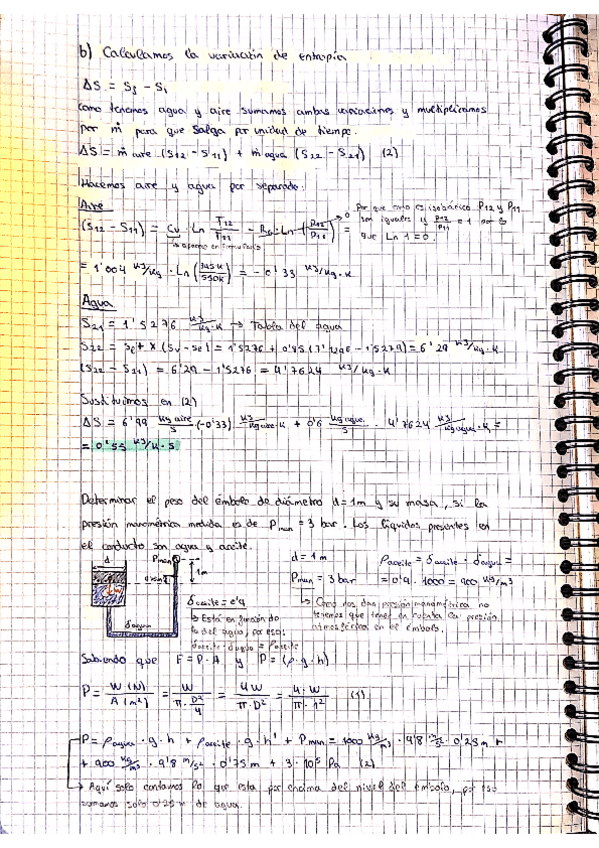 b) Calculamos la variación de entropía
ΔS = S3 - S1
Como tenemos agua y aire sumamos ambas variaciones y multiplicamos
por ṁ para que salga por unidad de tiempo.
ΔS = ṁ aire (S12 - S11) + ṁ agua (S22 - S21) (2)
Hacemos aire y agua por separado:
Aire
(S12 - S11) = Cv · Ln T12/T11 - Rg · Ln (P12/P11) =
0 Por que como es isobárico P12 y P11
son iguales y P12/P11 = 1
que Ln 1 = 0.
= 1'004 KJ/kg · Ln (345K/530K) = -0'33 KJ/kg·K
Agua
S21 = 1'5276 KJ/kg·K → Tabla del agua
S22 = Sl + x (Sv - Sl) = 1'5276 + 0'85 (7'1296 - 1'5279) = 6'29 KJ/kg·K
(S22 - S21) = 6'29 - 1'5276 = 4'7624 KJ/kg·K
Sustituimos en (2)
ΔS = 6'99 kg aire/s · (-0'33) KJ/kg aire·K + 0'6 kg agua/s · 4'7624 KJ/kg agua·K =
= 0'55 KJ/K·s
Determinar el peso del émbolo de diámetro d=1m y su masa, si la
presión manométrica medida es de Pman = 3 bar. Los líquidos presentes en
el conducto son agua y aceite.
d
Pman
1m
δagua
d = 1m
Pman = 3 bar
ρaceite = δaceite · δagua =
= 0'9 · 1000 = 900 kg/m³
δaceite = 0'9
↳ Está en función de
la del agua, por eso:
δaceite · δagua = ρaceite
↳ Como nos dan presión manométrica no
tenemos que tener en cuenta la presión
atmosférica en el émbolo.
Sabiendo que F = P · A y P = (ρ · g · h)
P = W (N)/A (m²) = W/(π · D²/4) = 4W/(π · D²) = 4 · W/(π · 1²) (1)
P = ρagua · g · h + ρaceite · g · h' + Pman = 1000 kg/m³ · 9'8 m/s² · 0'25 m +
+ 900 kg/m³ · 9'8 m/s² · 0'75 m + 3 · 10⁵ Pa (2)
→ Aquí solo contamos lo que esta por encima del nivel del émbolo, por eso
sumamos solo 0'25 m de agua.